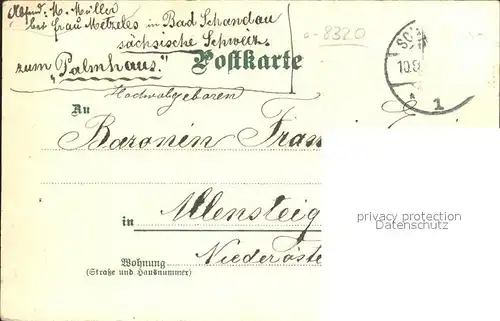 Absend: M. Müller
bei Frau Metzeles in Bad Schandau
sächsische Schweiz
zum "Palmhaus."
8320
Postkarte
SCH
10.9
1
Hochwohlgeboren
An
Baronin Fran
in Allensteig
Niederöste
Wohnung
(Straße und Hausnummer)
privacy protection
Datenschutz